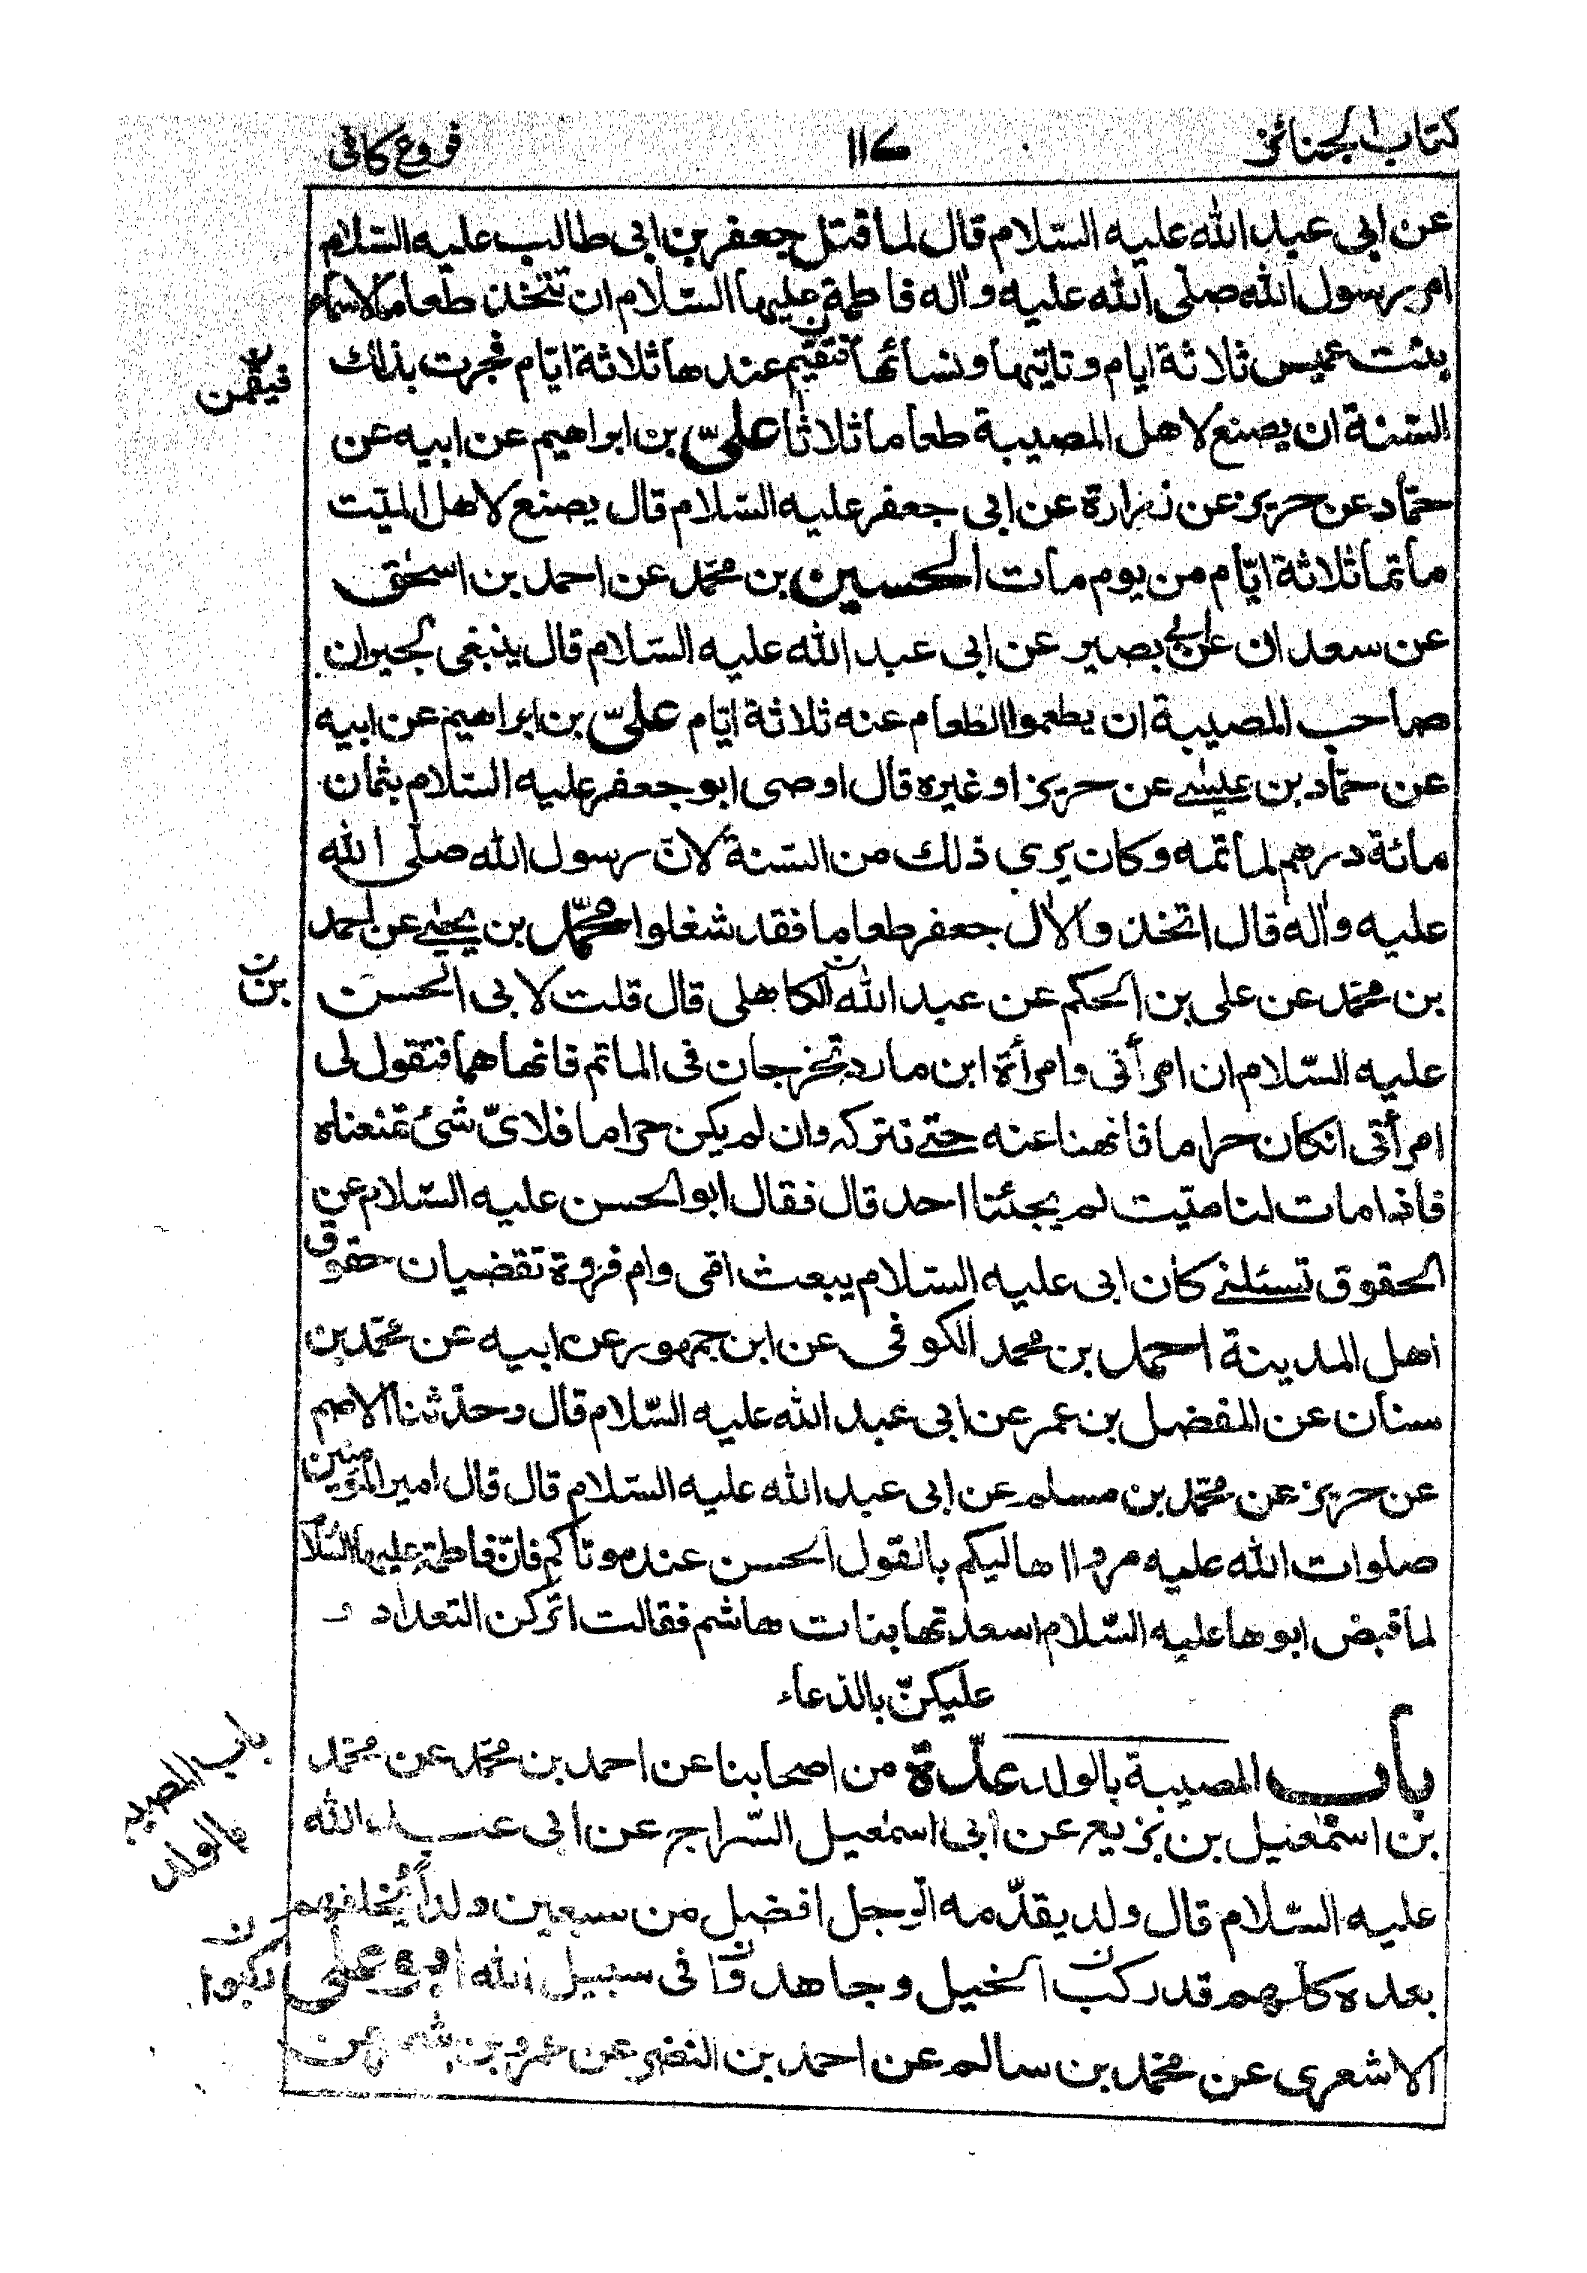 كتاب الجنائز
١١٧
فروع كافى
عن ابى عبد الله عليه السلام قال لما قتل جعفر بن ابى طالب عليه السلام
امر رسول الله صلى الله عليه واله فاطمة عليها السلام ان تتخذ طعاما لاسماء
بنت عميس ثلاثة ايام وتاتيها ونسائها فتقيم عندها ثلاثة ايام فجرت بذلك
فيقمن
السنة ان يصنع لاهل المصيبة طعاما ثلاثا علىّ بن ابراهيم عن ابيه عن
حماد عن حريز عن زرارة عن ابى جعفر عليه السلام قال يصنع لاهل الميت
مأتما ثلاثة ايام من يوم مات الحسين بن محمد عن احمد بن اسحق
عن سعدان عن ابى بصير عن ابى عبد الله عليه السلام قال ينبغى لجيران
صاحب المصيبة ان يطعموا الطعام عنه ثلاثة ايام علىّ بن ابراهيم عن ابيه
عن حماد بن عيسى عن حريز او غيره قال اوصى ابو جعفر عليه السلام بثمان
مائة درهم لمأتمه وكان يرى ذلك من السنة لان رسول الله صلى الله
عليه واله قال اتخذوا لآل جعفر طعاما فقد شغلوا محمد بن يحيى عن احمد
بن محمد عن على بن الحكم عن عبد الله الكاهلى قال قلت لابى الحسن
بن
عليه السلام ان امرأتى وامرأة ابن مارد تخرجان فى الماتم فانهاهما فتقول لى
امرأتى انكان حراما فانهنا عنه حتى نتركه وان لم يكن حراما فلاىّ شئ تمنعناه
فاذا مات لنا ميت لم يجئنا احد قال فقال ابو الحسن عليه السلام عن
الحقوق تسئلنى كان ابى عليه السلام يبعث امى وام فروة تقضيان حقوق
اهل المدينة احمد بن محمد الكوفى عن ابن جمهور عن ابيه عن محمد بن
سنان عن المفضل بن عمر عن ابى عبد الله عليه السلام قال وحدثنا الاصم
عن حريز عن محمد بن مسلم عن ابى عبد الله عليه السلام قال قال امير المؤمنين
صلوات الله عليه مروا اهاليكم بالقول الحسن عند موتاكم فان فاطمة عليها السلا
لما قبض ابوها عليه السلام اسعدتها بنات هاشم فقالت اتركن التعداد و
عليكنّ بالدعاء
باب المصيبة بالولد عدّة من اصحابنا عن احمد بن محمد عن محمد
باب المصيبة
بالولد
بن اسمعيل بن بزيع عن ابى اسمعيل السراج عن ابى عبد الله
عليه السلام قال ولد يقدّمه الرجل افضل من سبعين ولداً يخلفهم
بعده كلهم قد ركب الخيل وجاهدوا فى سبيل الله ابو على
ركبوا
الاشعرى عن محمد بن سالم عن احمد بن النضر عن عمرو بن شمر عن